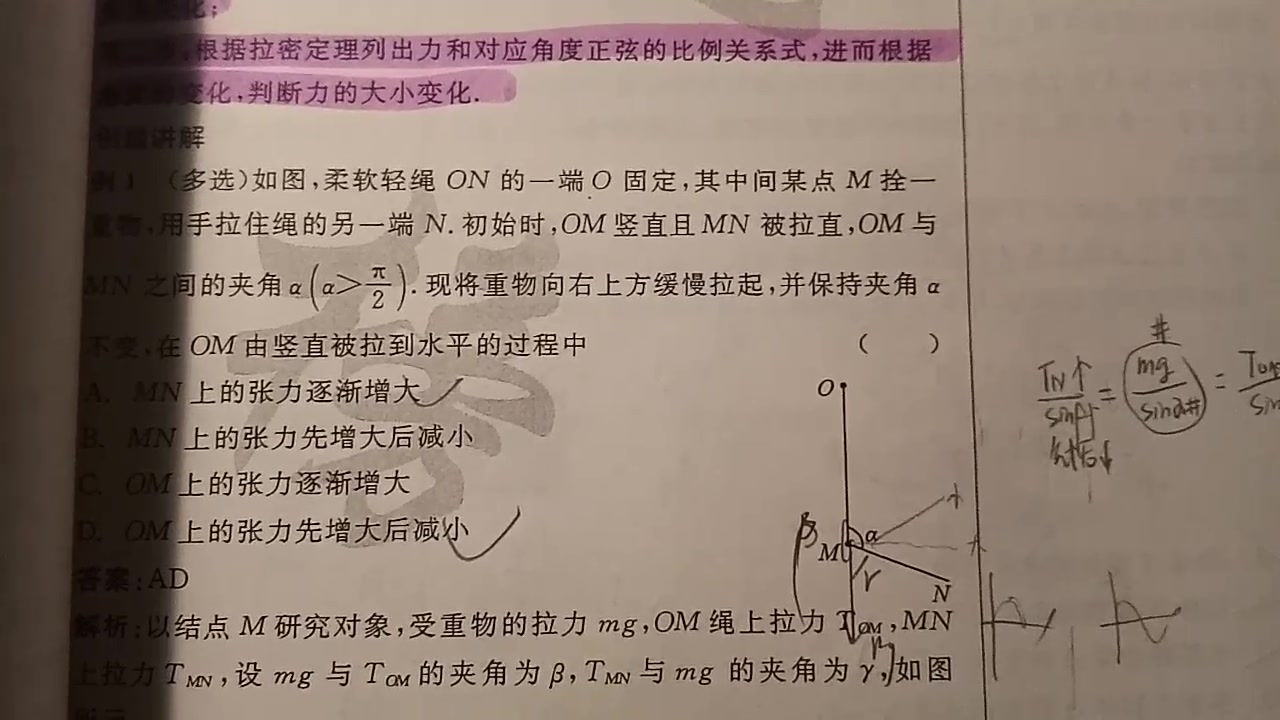 化；
，根据拉密定理列出力和对应角度正弦的比例关系式，进而根据
变化，判断力的大小变化.
例题讲解
例1 （多选）如图，柔软轻绳 ON 的一端 O 固定，其中间某点 M 拴一
重物，用手拉住绳的另一端 N. 初始时，OM 竖直且 MN 被拉直，OM 与
MN 之间的夹角 α(α>π/2). 现将重物向右上方缓慢拉起，并保持夹角 α
不变，在 OM 由竖直被拉到水平的过程中 （ ）
A. MN 上的张力逐渐增大
B. MN 上的张力先增大后减小
C. OM 上的张力逐渐增大
D. OM 上的张力先增大后减小
答案：AD
解析：以结点 M 研究对象，受重物的拉力 mg，OM 绳上拉力 T_OM，MN
上拉力 T_MN，设 mg 与 T_OM 的夹角为 β，T_MN 与 mg 的夹角为 γ，如图
所示
O
β
M
α
γ
N
T_N↑/sinβ = mg/sinα = T